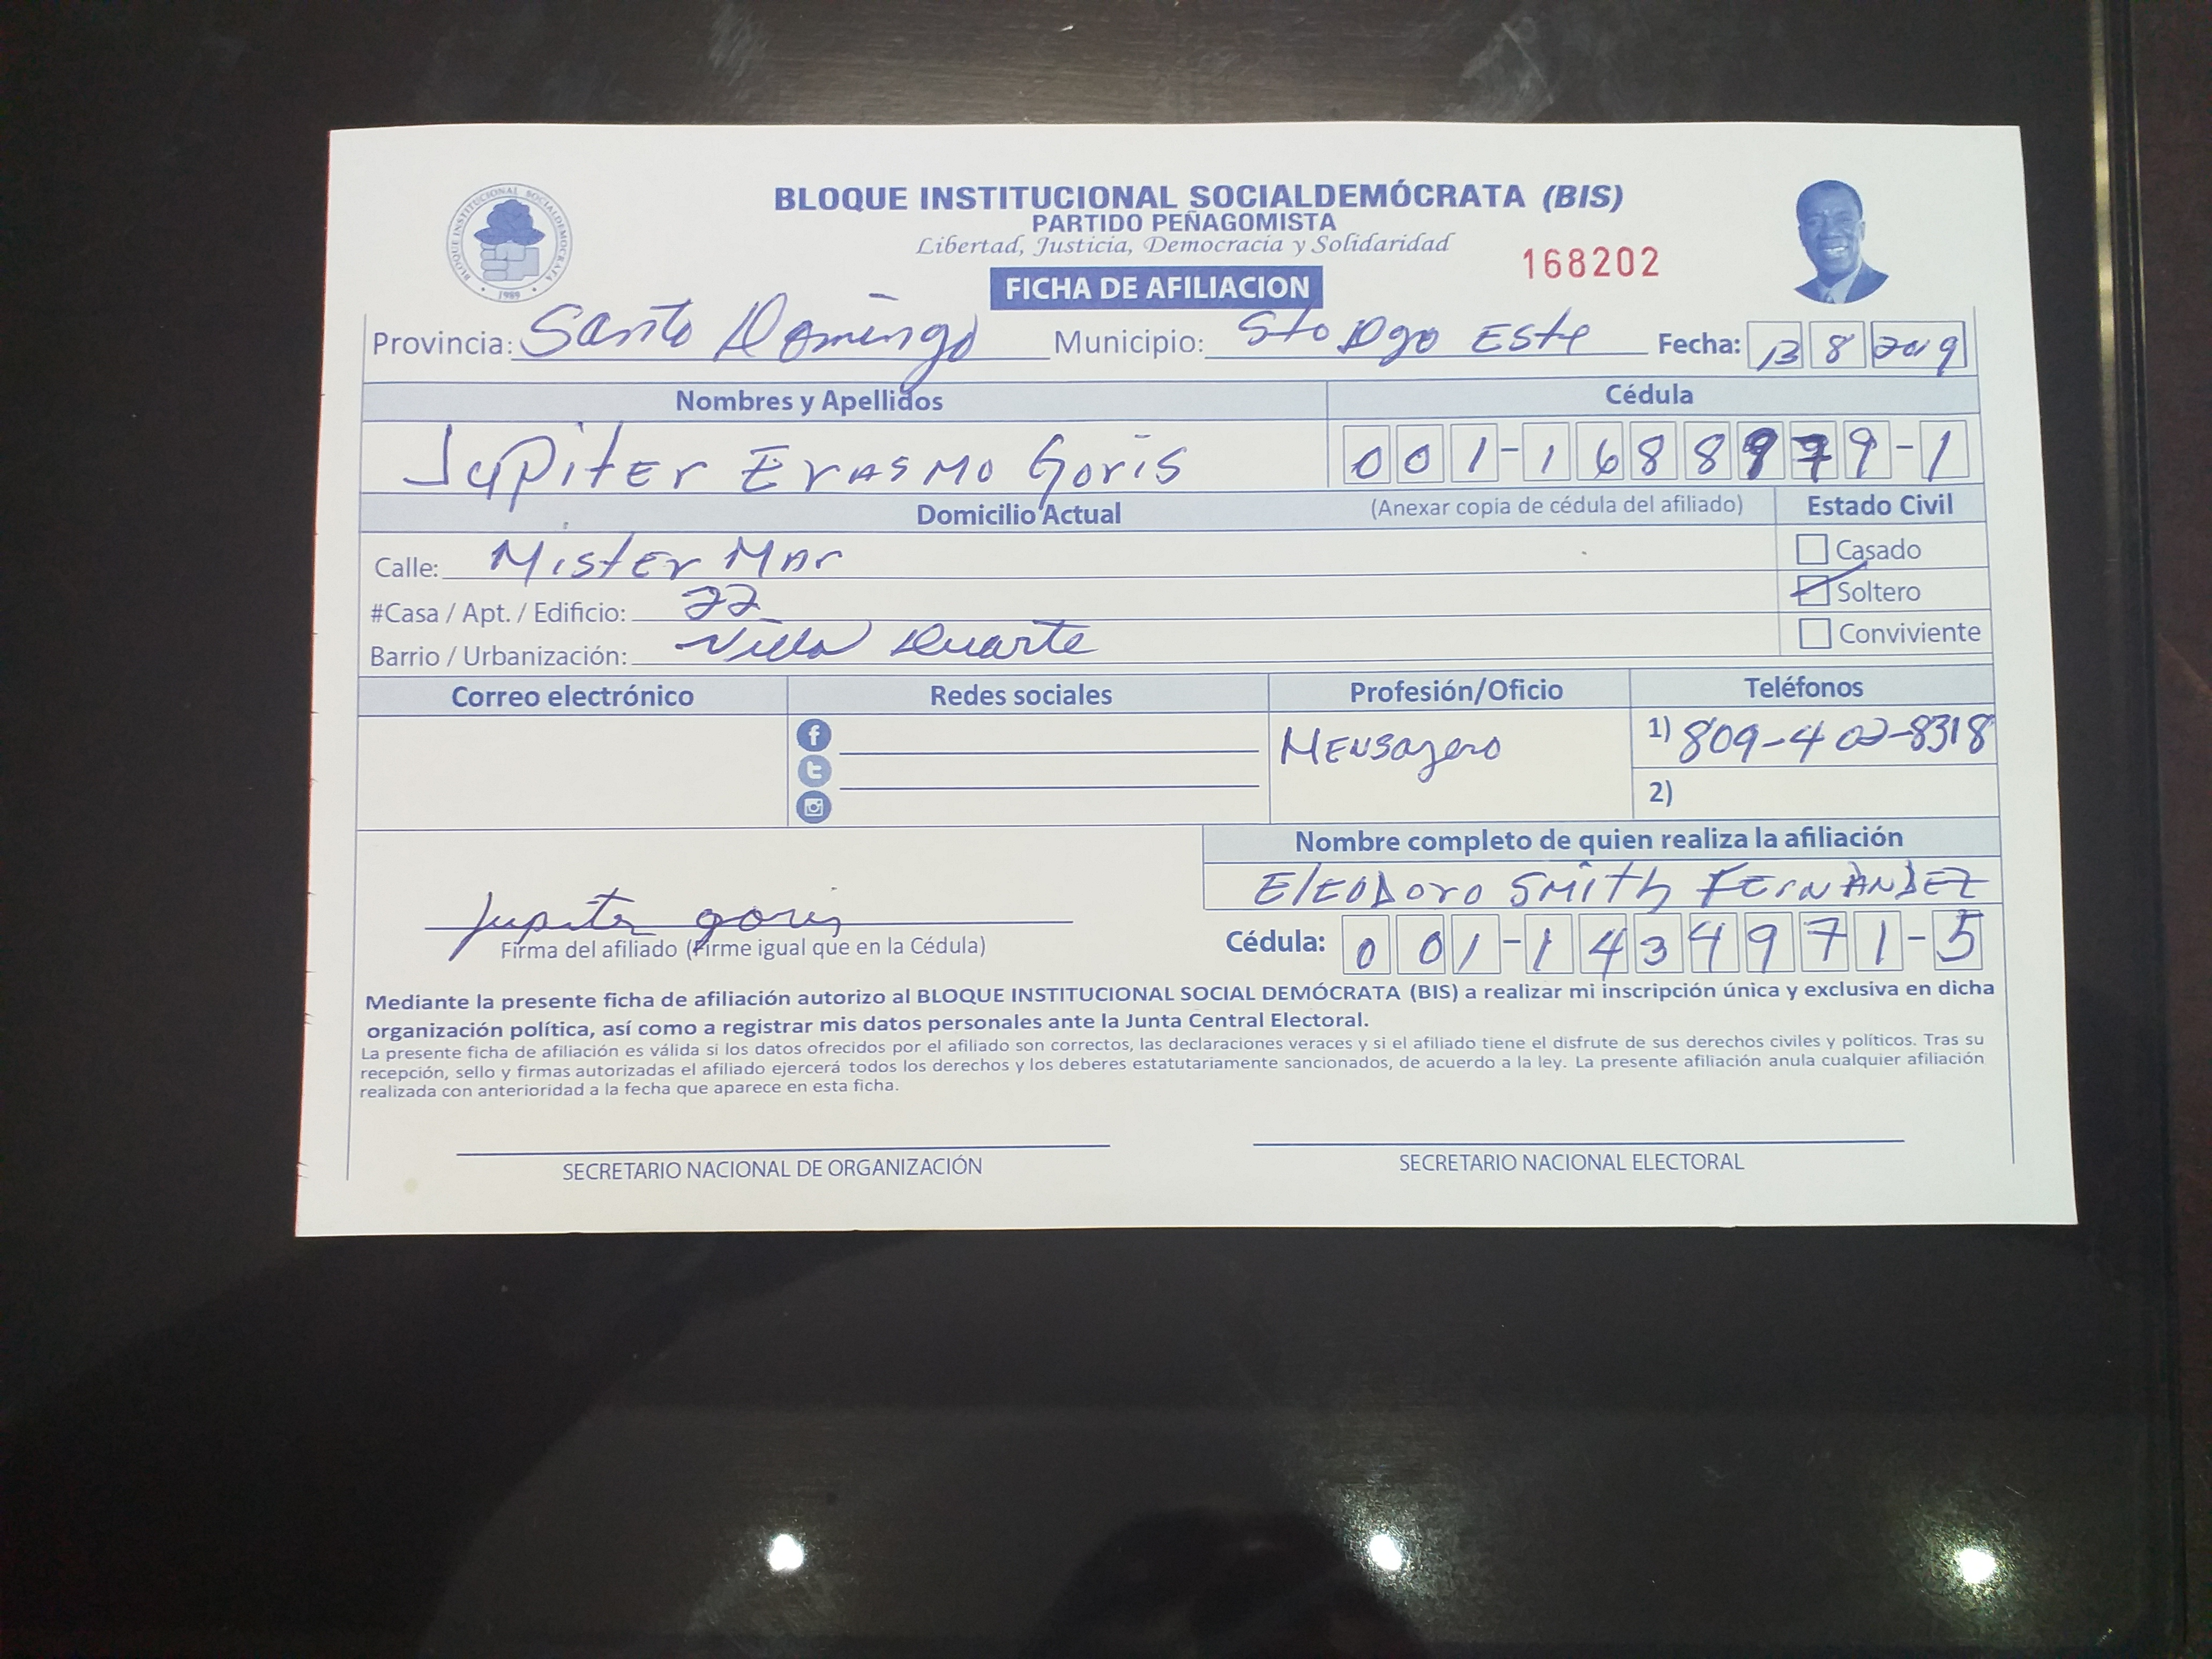 BLOQUE INSTITUCIONAL SOCIALDEMÓCRATA (BIS)
PARTIDO PEÑAGOMISTA
Libertad, Justicia, Democracia y Solidaridad
168202
BLOQUE INSTITUCIONAL SOCIALDEMOCRATA
1989
FICHA DE AFILIACION
Provincia: Santo Domingo Municipio: Sto Dgo Este Fecha: 13 8 2019
Nombres y Apellidos Cédula
Jupiter Erasmo Goris 001-1688979-1
Domicilio Actual (Anexar copia de cédula del afiliado) Estado Civil
Calle: Mister Mar Casado
#Casa / Apt. / Edificio: 22 Soltero
Barrio / Urbanización: Villa Duarte Conviviente
Correo electrónico Redes sociales Profesión/Oficio Teléfonos
Mensajero 1) 809-402-8318
2)
Nombre completo de quien realiza la afiliación
Eleodoro Smith Fernández
Jupiter goris
Firma del afiliado (Firme igual que en la Cédula) Cédula: 001-1434971-5
Mediante la presente ficha de afiliación autorizo al BLOQUE INSTITUCIONAL SOCIAL DEMÓCRATA (BIS) a realizar mi inscripción única y exclusiva en dicha
organización política, así como a registrar mis datos personales ante la Junta Central Electoral.
La presente ficha de afiliación es válida si los datos ofrecidos por el afiliado son correctos, las declaraciones veraces y si el afiliado tiene el disfrute de sus derechos civiles y políticos. Tras su
recepción, sello y firmas autorizadas el afiliado ejercerá todos los derechos y los deberes estatutariamente sancionados, de acuerdo a la ley. La presente afiliación anula cualquier afiliación
realizada con anterioridad a la fecha que aparece en esta ficha.
SECRETARIO NACIONAL DE ORGANIZACIÓN SECRETARIO NACIONAL ELECTORAL